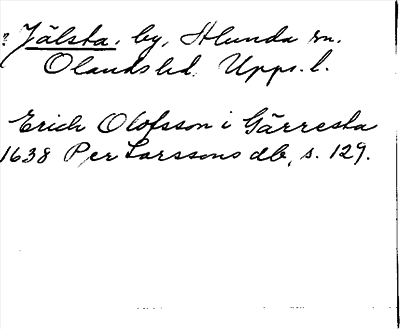 ? Jälsta, by, Hlunda sn.
Olands hd. Upps. l.
Erich Olofsson i Gärresta
1638 Per Larssons db, s. 129.